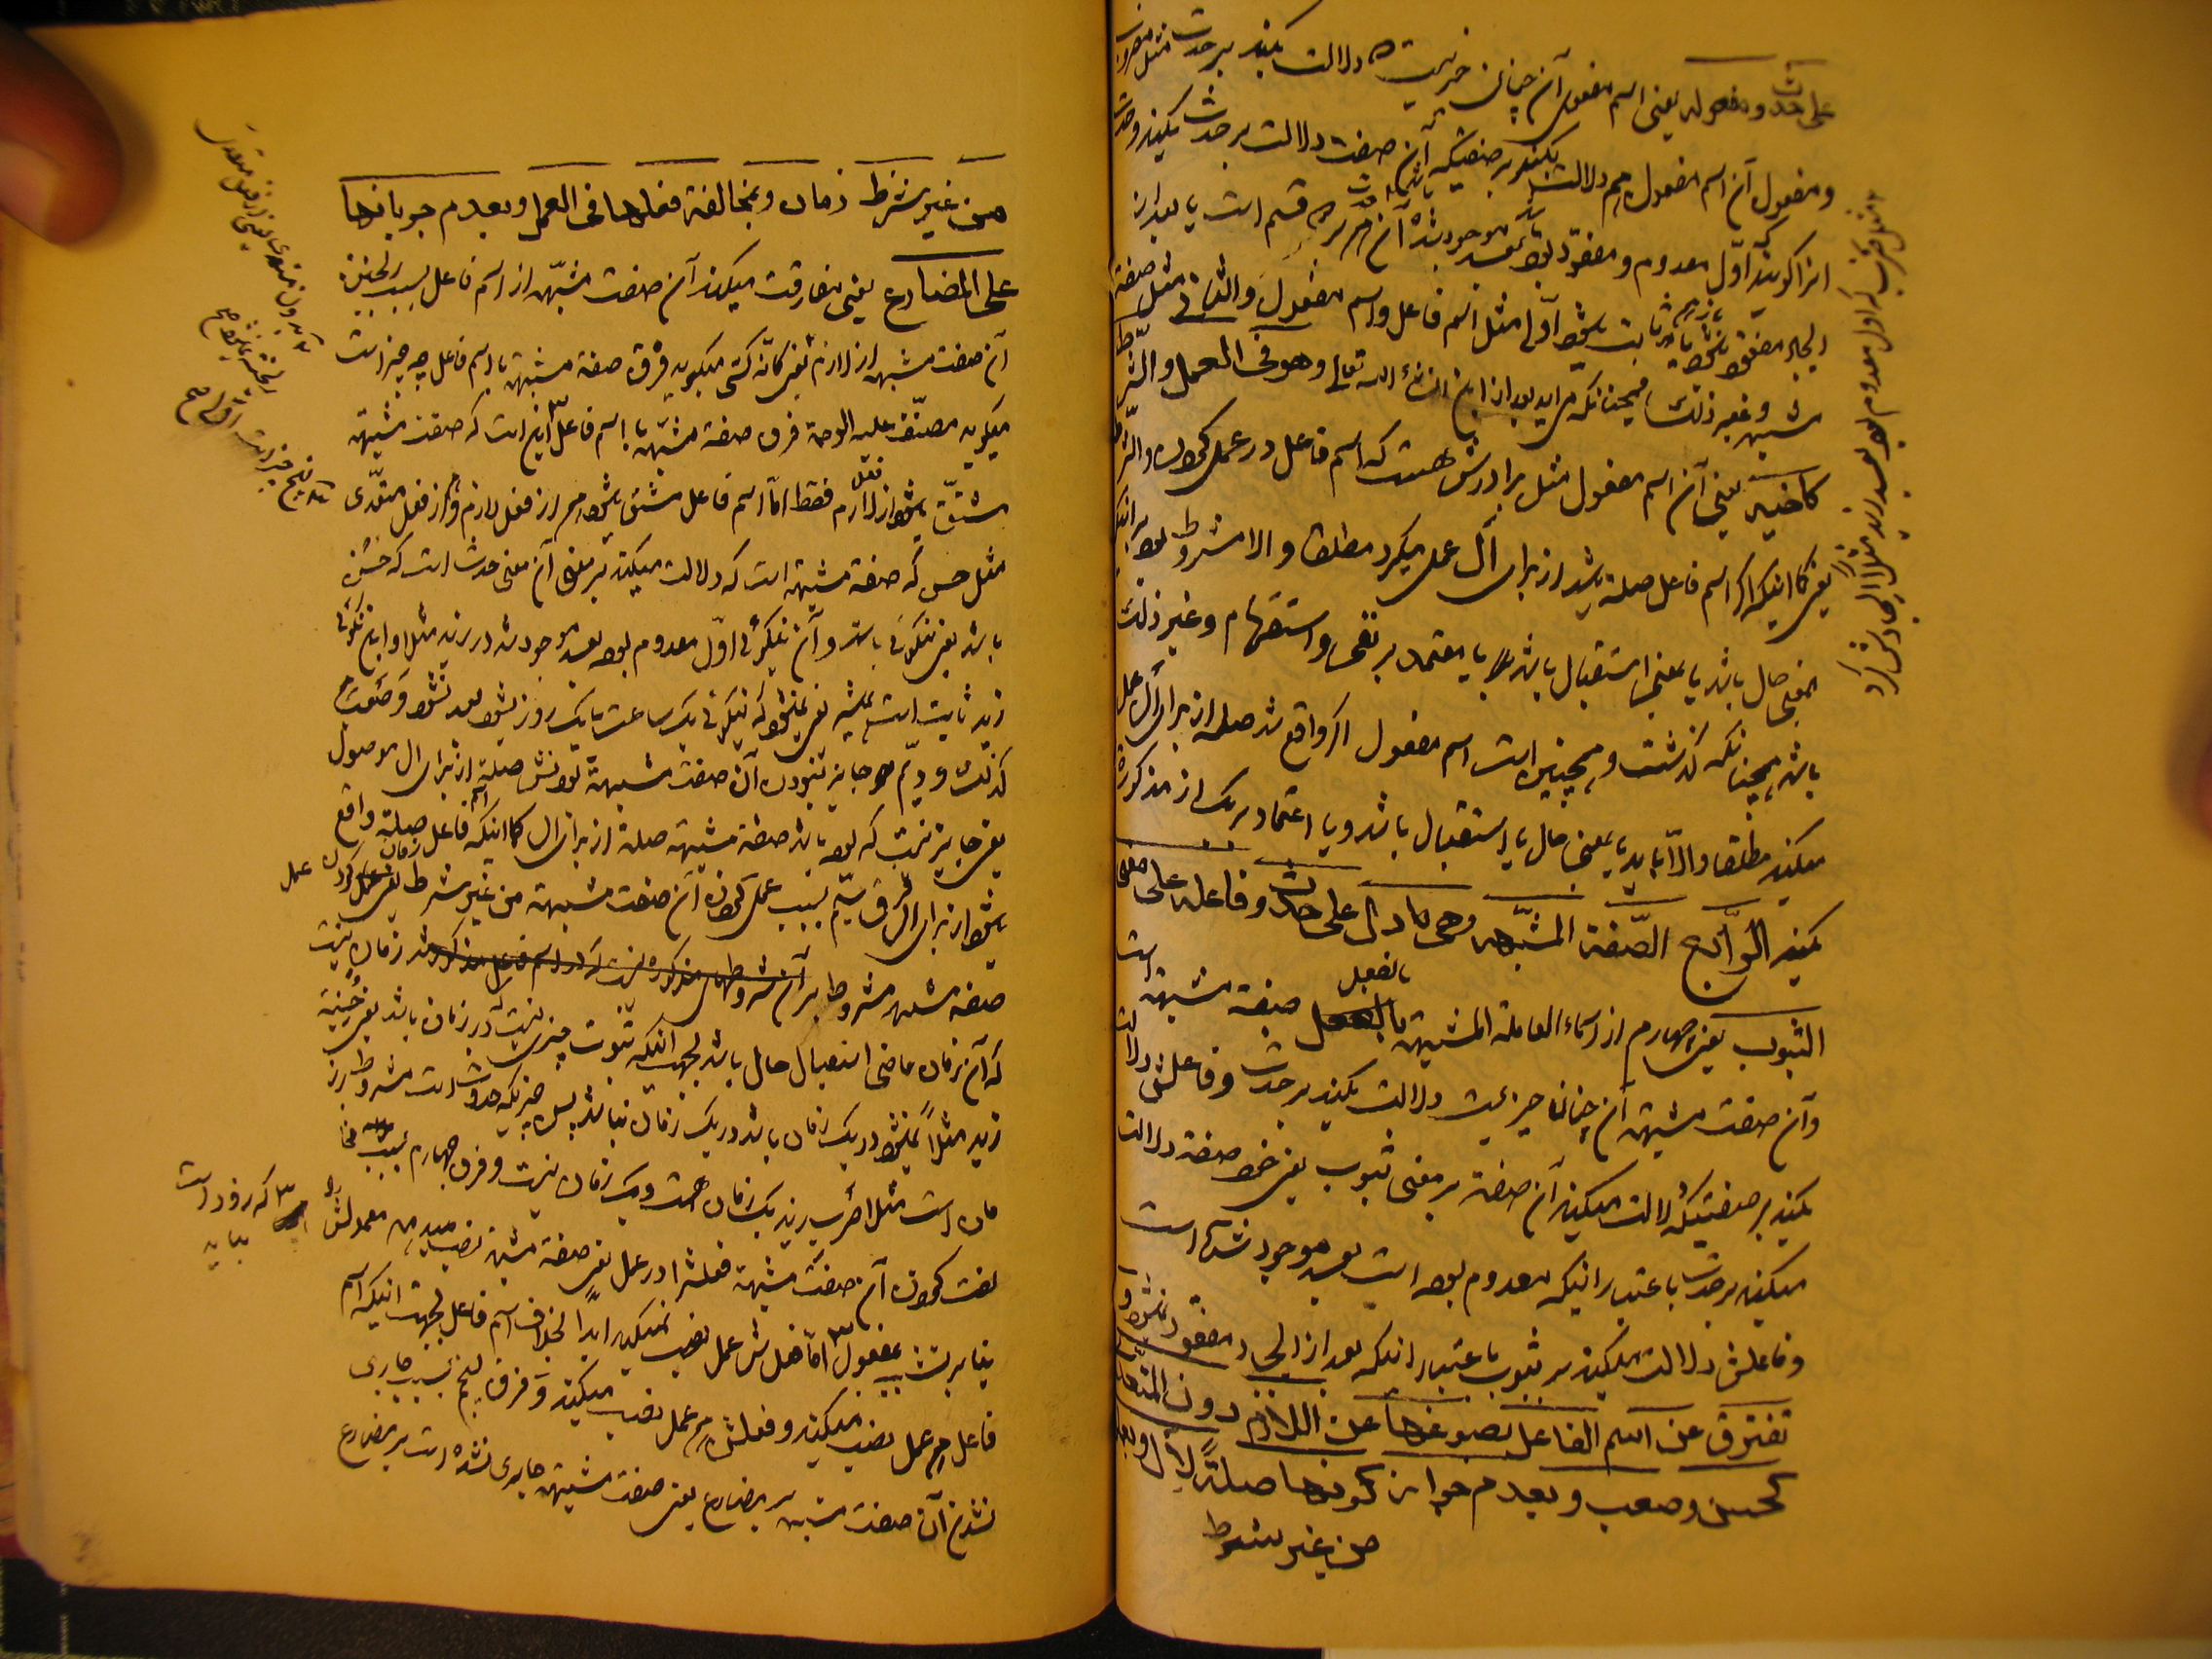 علی حدث و مفعوله یعنی اسم مفعول آن چنان چیزیست که دلالت بکند بر حدث مثل مضروب
و مفعول آن اسم مفعول هم دلالت بکند بر صفتیکه آن صفت دلالت بر حدث میکند و حدث
انرا گویند که اول معدوم و مفقود بوده بعد موجود شده آن هم بر دو قسم است یا بعد از
ایجاد مفقود بشود یا ثابت بشود اولی مثل اسم فاعل و اسم مفعول و الثانی مثل صفة
مشبهه و غیر ذلک همچنانکه می‌اید بعد از این انشاء الله تعالی و هو فی العمل و الشرط
کاخیه یعنی آن اسم مفعول مثل برادرش هست که اسم فاعل در عمل کردن و الشرط
یعنی کما اینکه اگر اسم فاعل صله باشد از برای ال عمل میکرد مطلقا و الا مشروط بود بر اینکه
بمعنی حال باشد یا بمعنی استقبال باشد یا معتمد بر نفی و استفهام و غیر ذلک
باشد همچنانکه گذشت و همچنین است اسم مفعول اگر واقع شد صله از برای ال عمل
میکند مطلقا و الا باید بمعنی حال یا استقبال باشد و با اعتماد بر یک از مذکوره
بکند الرابع الصفة المشبهه وهی ما دل علی حدث و فاعله علی معنی
الثبوت یعنی چهارم از اسماء العاملة المشبهة بالفعل صفة مشبهه است
و آن صفت مشبهه آن چنان چیزیست دلالت بکند بر حدث و فاعلش دلالت
بکند بر صفتیکه دلالت میکند آن صفة بر معنی ثبوت یعنی خود صفة دلالت
میکند بر حدث باعتبار اینکه معدوم بوده است بعد موجود شده است
و فاعلش دلالت میکند بر ثبوت باعتبار اینکه بعد از ایجاد مفقود نشود و
تفترق عن اسم الفاعل بصوغها عن اللازم دون المتعدی
کحسن و صعب و بعدم جواز کونها صلة لال و بعملها
من غیر شرط
من غیر شرط زمان و بمخالفة فعلها فی العمل و بعدم جریانها
علی المضارع یعنی مفارقت میکند آن صفت مشبهه از اسم فاعل بسبب ریختن
آن صفت مشبهه از لازم یعنی کانه کسی میگوید فرق صفة مشبهه با اسم فاعل چه چیز است
میگوید مصنف علیه الرحمة فرق صفة مشبهه با اسم فاعل این است که صفت مشبهه
مشتق بشود از فعل لازم فقط اما اسم فاعل مشتق بشود هم از فعل لازم و هم از فعل متعدی
مثل حسن که صفة مشبهه است که دلالت میکند بر معنی آن معنی حدث است که حسن
باشد یعنی نیکوئی باشد و آن نیکوئی اول معدوم بوده بعد موجود شد در زید مثلا و این نیکوئی
زید ثابت است همیشه یعنی نمیشود که نیکوئی یک ساعت یا یک روز بشود بعد نشود و صعب هم
کذلک و دیم جایز نبودن آن صفت مشبهة بودنش صله از برای ال موصول
یعنی جایز نیست که بوده باشد صفة مشبهه صلة از برای ال کما اینکه اسم فاعل صلة واقع
بشود از برای ال فرق سیم بسبب عمل کردن آن صفت مشبهه من غیر شرط زمان یعنی عمل کردن
صفه مشبهه مشروط بر آن شروطهای مذکوره نیست که در اسم فاعل مذکور شد زمان نیست
که آن زمان ماضی استقبال حال باشد بجهت اینکه ثبوت چیزی نیست که در زمان باشد یعنی حسنیة
زید مثلا نمیشود در یک زمان باشد در یک زمان نباشد پس چیزیکه حدوث است مشروط بز
مان است مثل ضارب زید یک زمان هست و یک زمان نیست و فرق چهارم بسبب مخا
لفت کردن آن صفت مشبهه فعلش را در عمل یعنی صفة مشبهه نصب میدهد معمولش را
بنا بر تشبیه بمفعول اما فعلش عمل نصب نمیکند ابدا بخلاف اسم فاعل بجهت اینکه اسم
فاعل هم عمل نصب میکند و فعلش هم عمل نصب میکند و فرق پنجم بسبب جاری
نشدن آن صفت مشبهه بر مضارع یعنی صفت مشبهه جاری نشده است بر مضارع